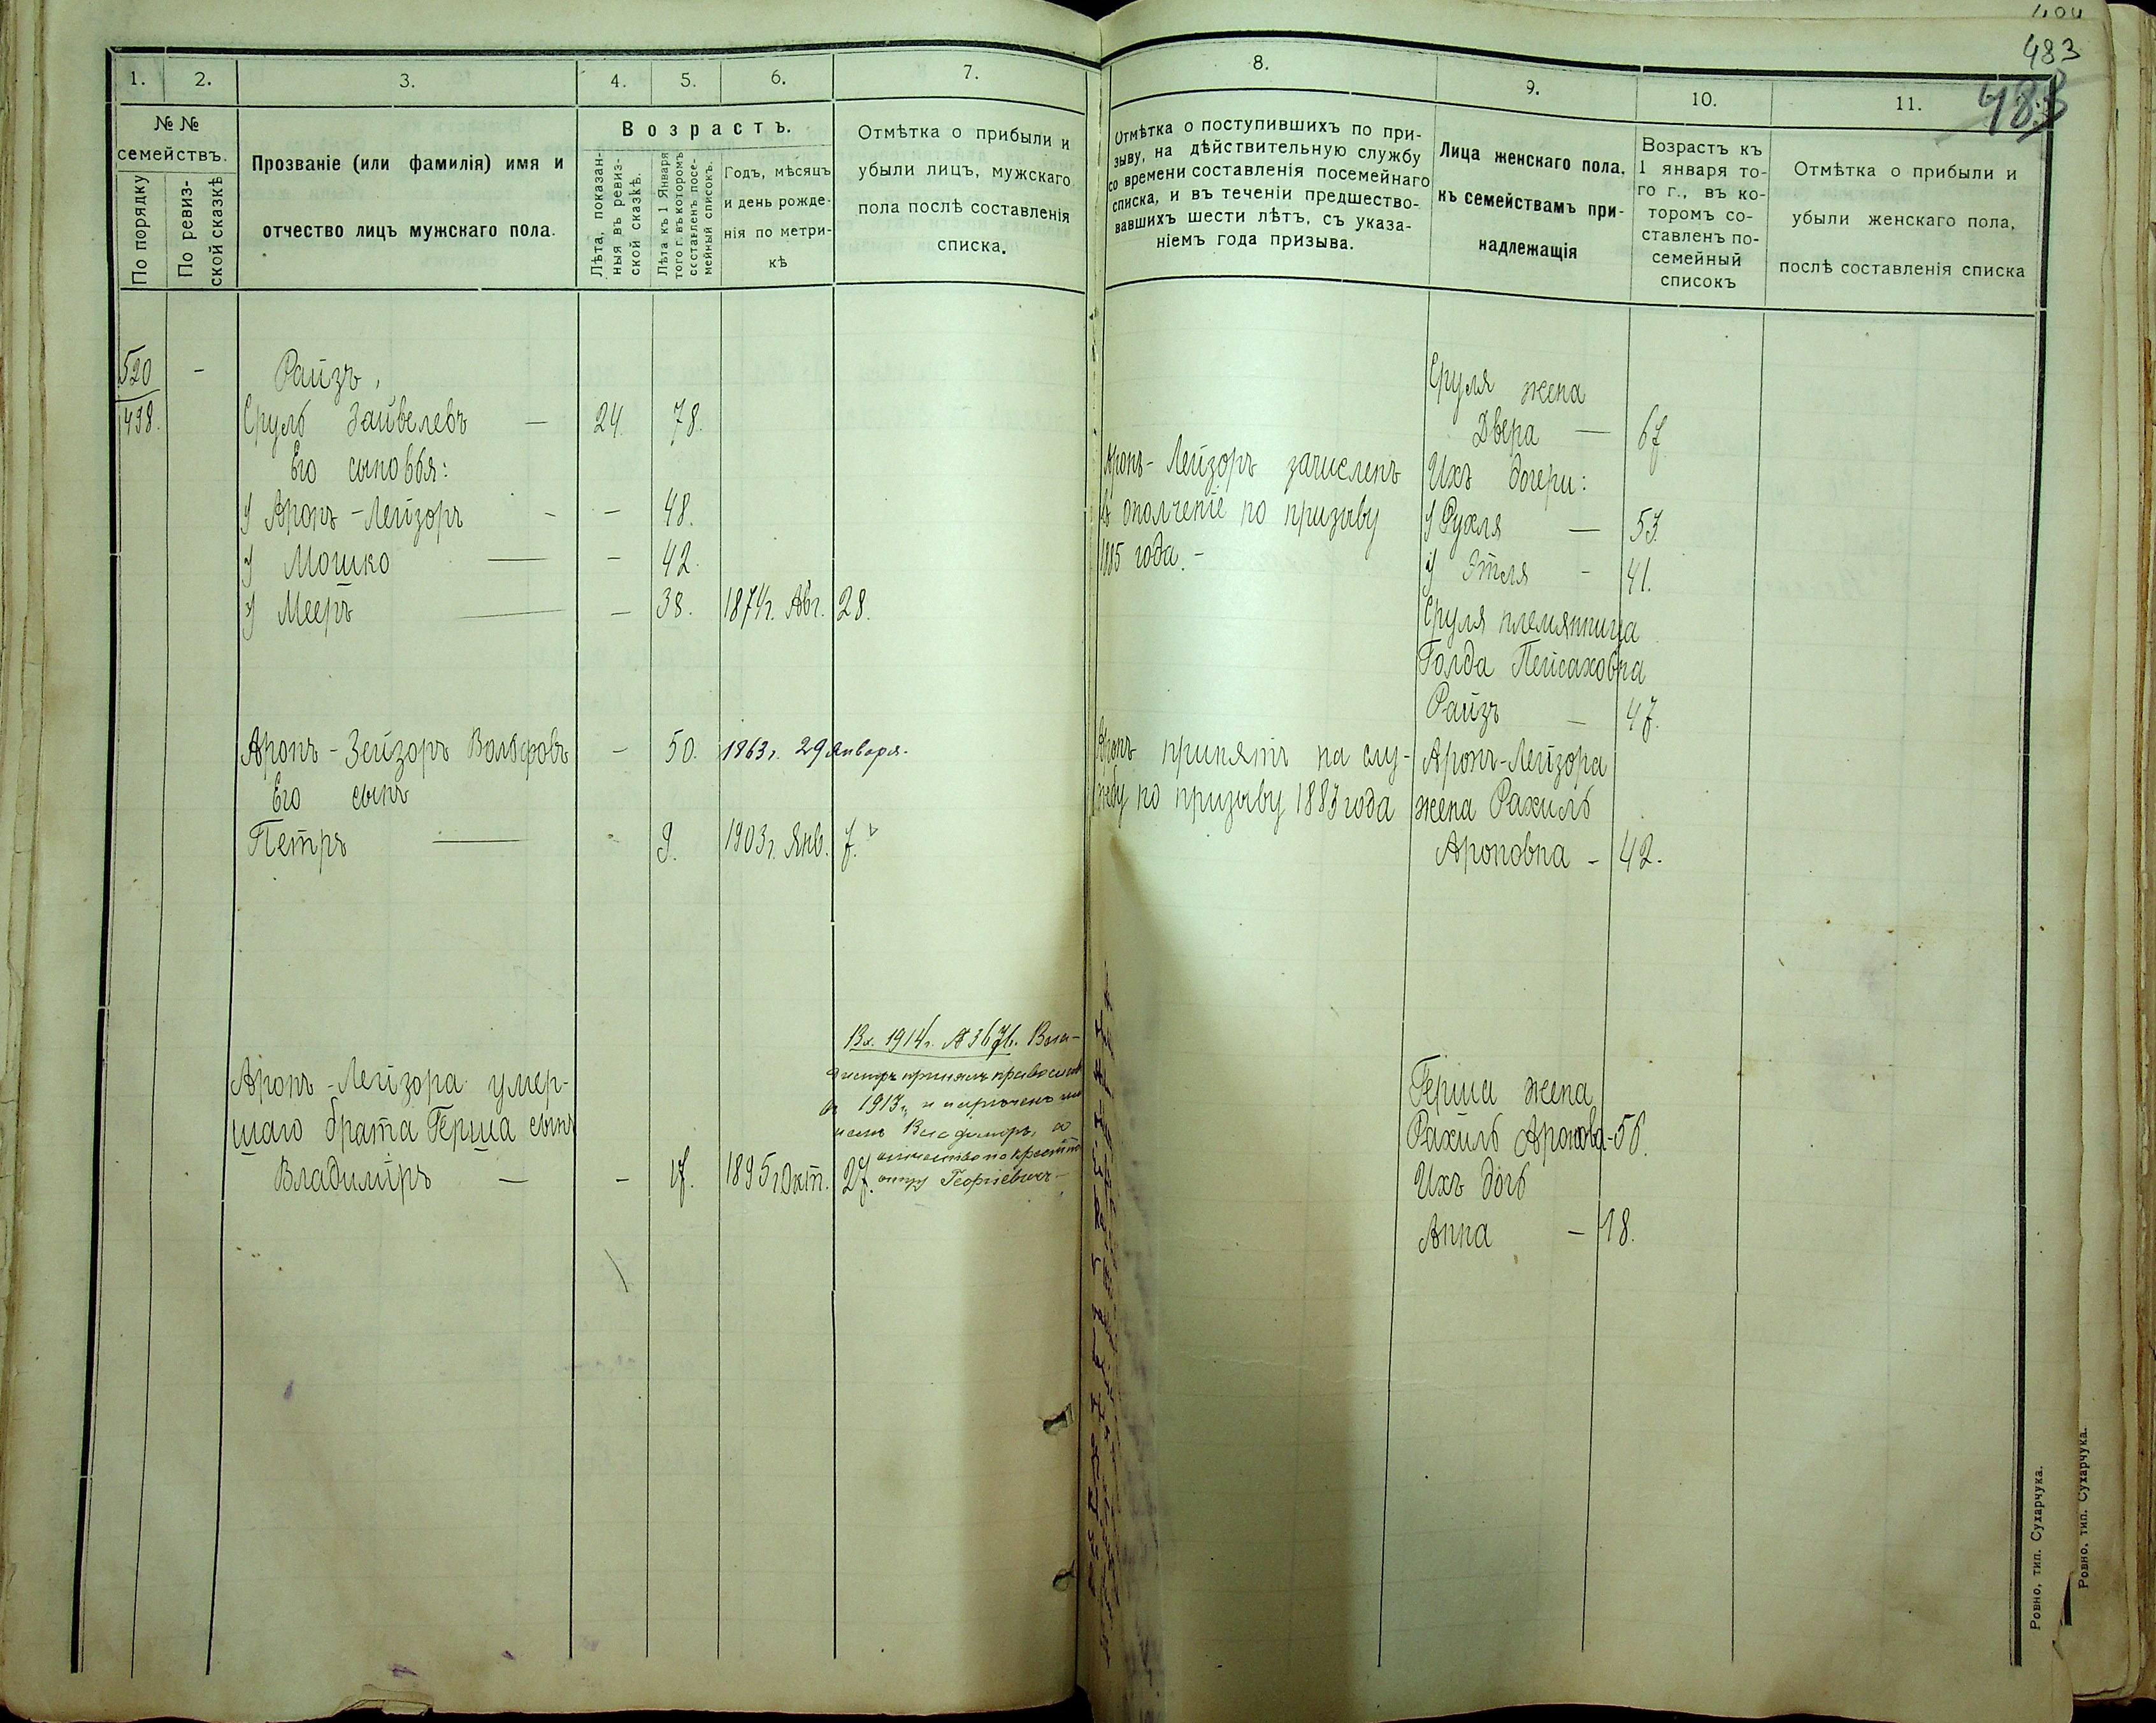 483
483
1. 2. 3. 4. 5. 6. 7.
№ №
семействъ.
По порядку
По ревиз-
ской сказкѣ
Прозваніе (или фамилія) имя и
отчество лицъ мужскаго пола.
Возрастъ.
Лѣта, показан-
ныя въ ревиз-
ской сказкѣ.
Лѣта къ 1 Января
того г. въ которомъ
составленъ посе-
мейный списокъ.
Годъ, мѣсяцъ
и день рожде-
нія по метри-
кѣ
Отмѣтка о прибыли и
убыли лицъ, мужскаго
пола послѣ составленія
списка.
520 - Райзъ,
498. Сруль Зайвелевъ — 24. 78.
Его сыновья:
1) Аронъ-Лейзоръ - - 48.
2) Мошко — - 42.
3) Мееръ — - 38. 1874г. Авг. 28.
Аронъ-Зейзоръ Вольфовъ - 50. 1863г. 29 Января.
Его сынъ
Петръ — - 9. 1903г. Янв. 7.
Вх. 1914г. № 3676. Вла-
въ 1913г. и нареченъ
Владиміръ, а
отчество по
Георгіевичъ -
Аронъ-Лейзора умер-
шаго брата Герша сынъ
Владиміръ — - 17. 1895г. Окт. 27.
8. 9. 10. 11.
Отмѣтка о поступившихъ по при-
зыву, на дѣйствительную службу
со времени составленія посемейнаго
списка, и въ теченіи предшество-
вавшихъ шести лѣтъ, съ указа-
ніемъ года призыва.
Лица женскаго пола,
къ семействамъ при-
надлежащія
Возрастъ къ
1 января то-
го г., въ ко-
торомъ со-
ставленъ по-
семейный
списокъ
Отмѣтка о прибыли и
убыли женскаго пола,
послѣ составленія списка
Сруля жена
Двера — 67
Аронъ-Лейзоръ зачисленъ
въ ополченіе по призыву
1885 года. -
Ихъ дочери:
1) Рухля — 53.
2) Этля - 41.
Сруля племянница
Голда Пейсаховна
Райзъ — 47.
Аронъ принятъ на слу-
жбу по призыву 1883 года
Аронъ-Лейзора
жена Рахиль
Ароновна - 42.
Герша жена
Рахиль Аронова - 56.
Ихъ дочь
Анна - 18.
Ровно, тип. Сухарчука.
Ровно, тип. Сухарчука.